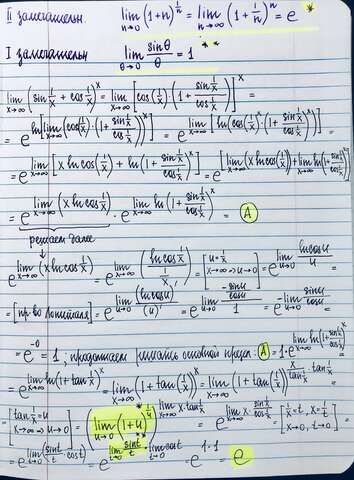 II замечательн. lim_{n→0} (1+n)^{1/n} = lim_{n→∞} (1+1/n)^n = e *
I замечательн lim_{θ→0} sinθ/θ = 1 **
lim_{x→∞} (sin 1/x + cos 1/x)^x = lim_{x→∞} [cos(1/x) · (1 + sin 1/x / cos 1/x)]^x =
= e^{ln[lim_{x→∞} (cos(1/x) · (1 + sin 1/x / cos 1/x))^x]} = e^{lim_{x→∞} [ln(cos(1/x)^x · (1 + sin 1/x / cos 1/x)^x)]} =
= e^{lim_{x→∞} [x ln cos(1/x) + ln(1 + sin 1/x / cos 1/x)^x]} = e^{[lim_{x→∞} (x ln cos(1/x)) + lim_{x→∞} ln(1 + sin 1/x / cos 1/x)^x]}
= e^{lim_{x→∞} (x ln cos 1/x)} · e^{lim_{x→∞} ln(1 + sin 1/x / cos 1/x)^x} = A
решаем далее
e^{lim_{x→∞} (x ln cos 1/x)} = e^{lim_{x→∞} (ln cos 1/x / 1/x)} = [u = 1/x x→∞ ⇒ u→0] = e^{lim_{u→0} ln cos u / u} =
= [пр-во Лопиталя] = e^{lim_{u→0} (ln cos u)' / (u)'} = e^{lim_{u→0} (-sin u / cos u) / 1} = e^{-lim_{u→0} sin u / cos u} =
= e^{-0} = 1, продолжаем решать основной предел: A = 1 · e^{lim_{x→∞} ln(1 + sin 1/x / cos 1/x)^x} =
= e^{lim_{x→∞} ln(1 + tan 1/x)^x} = lim_{x→∞} (1 + tan(1/x))^x = lim_{x→∞} (1 + tan(1/x))^{x / tan 1/x · tan 1/x} =
= [tan 1/x = u x→∞ ⇒ u→0] = (lim_{u→0} (1+u)^{1/u})^{lim_{x→∞} x·tan 1/x} = e^{lim_{x→∞} x · sin 1/x / cos 1/x} = [1/x = t, x = 1/t x→∞, t→0] =
= e^{lim_{t→0} (sin t / t · cos t)} = e^{lim_{t→0} sin t / t · lim_{t→0} cos t} = e^{1·1} = e